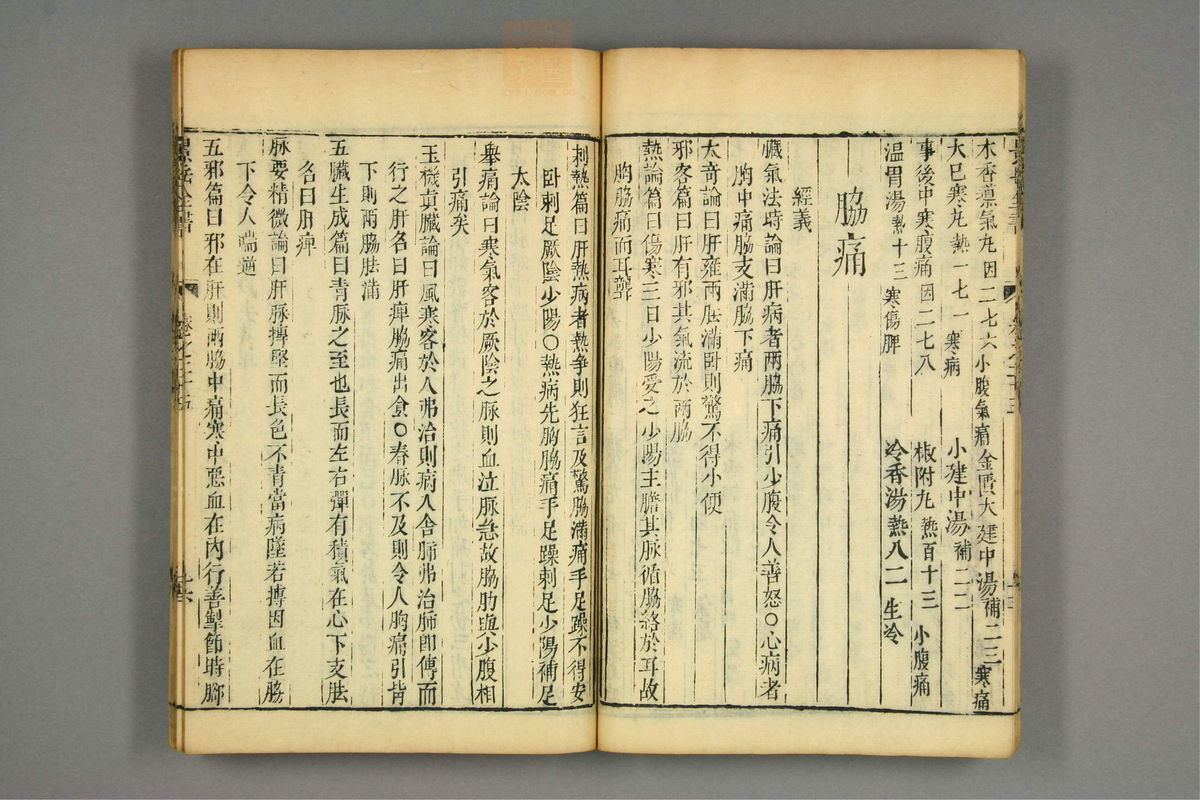 木香導氣丸 因二七六 小腹氣痛 金匱大建中湯 補二三 寒痛
大巳寒丸 熱一七一 寒痛 小建中湯 補二二
事後中寒腹痛 因二七八 椒附丸 熱百十三 小腹痛
温胃湯 熱十三 寒傷脾 冷香湯 熱八二 生冷
脇痛
經義
臟氣法時論曰肝病者兩脇下痛引少腹令人善怒○心病者
胸中痛脇支滿脇下痛
大奇論曰肝雍兩胠滿臥則驚不得小便
邪客篇曰肝有邪其氣流於兩脇
熱論篇曰傷寒三日少陽受之少陽主膽其脉循脇絡於耳故
胸脇痛而耳聾
刺熱篇曰肝熱病者熱爭則狂言及驚脇滿痛手足躁不得安
臥刺足厥陰少陽○熱病先胸脇痛手足躁刺足少陽補足
太陰
舉痛論曰寒氣客於厥陰之脉則血泣脉急故脇肋與少腹相
引痛矣
玉機真臟論曰風寒客於人弗治則病入舍肺弗治肺即傳而
行之肝名曰肝痺脇痛出食○春脉不及則令人胸痛引背
下則兩脇胠滿
五臟生成篇曰青脉之至也長而左右彈有積氣在心下支胠
名曰肝痺
脉要精微論曰肝脉搏堅而長色不青當病墜若搏因血在脇
下令人喘逆
五邪篇曰邪在肝則兩脇中痛寒中惡血在內行善掣節時腳
景岳全書
卷之二十五